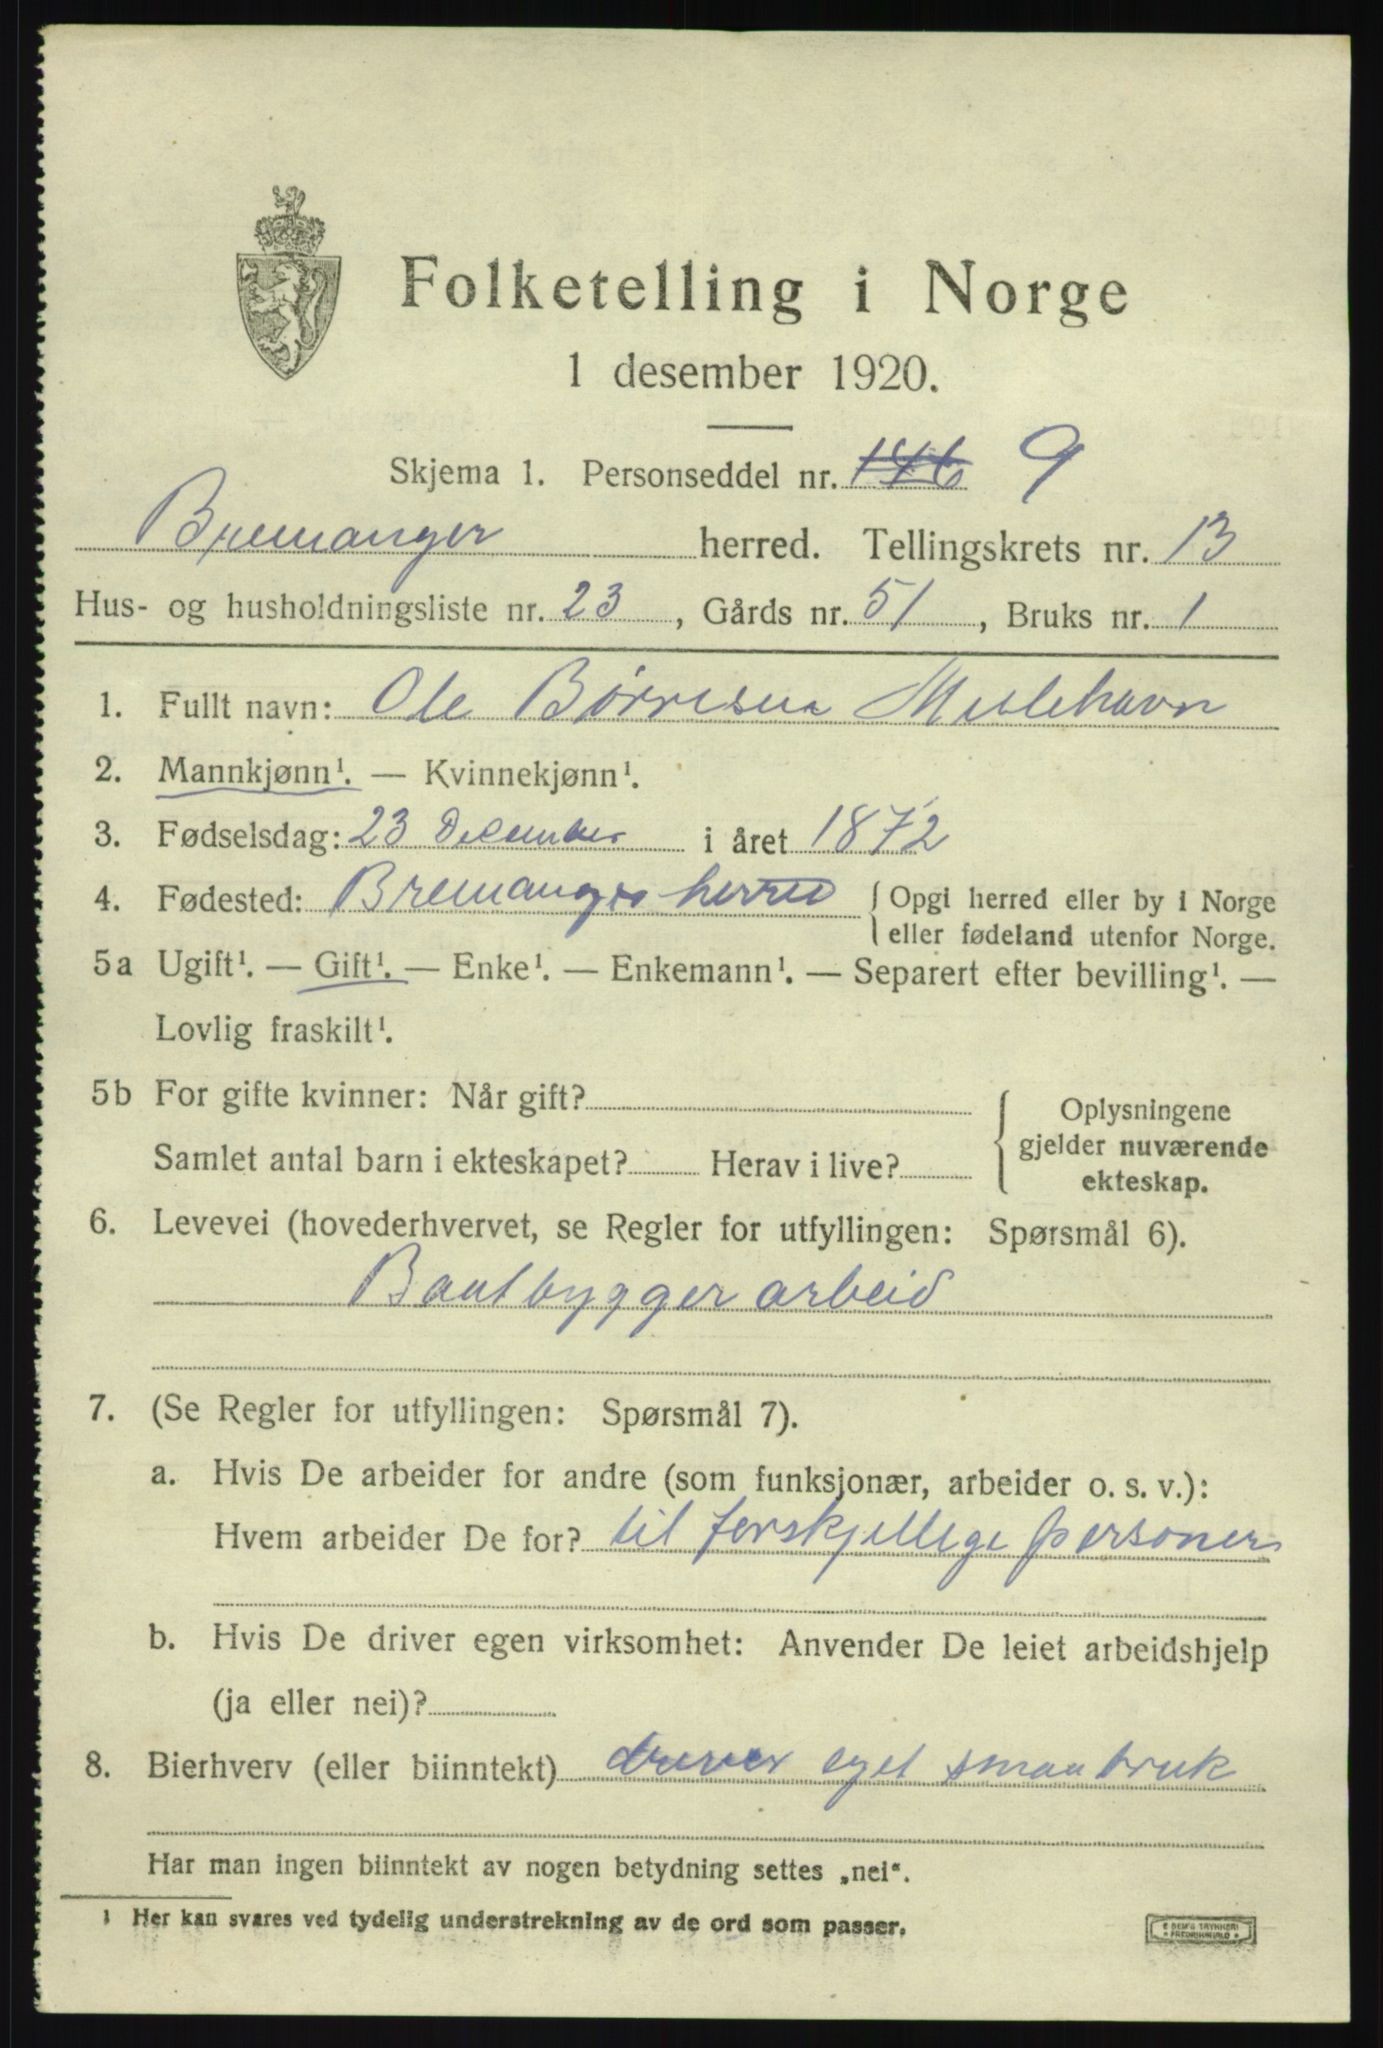 Folketelling i Norge
1 desember 1920.
Skjema 1. Personseddel nr. 146 9
Bremanger herred. Tellingskrets nr. 13
Hus- og husholdningsliste nr. 23, Gårds nr. 51, Bruks nr. 1
1. Fullt navn: Ole Børresen
2. Mannkjønn¹. — Kvinnekjønn¹.
3. Fødselsdag: 23 December i året 1872
4. Fødested: Bremanger herred { Opgi herred eller by i Norge
eller fødeland utenfor Norge.
5a Ugift¹. — Gift¹. — Enke¹. — Enkemann¹. — Separert efter bevilling¹. —
Lovlig fraskilt¹.
5b For gifte kvinner: Når gift?
Samlet antal barn i ekteskapet? Herav i live?
Oplysningene
gjelder nuværende
ekteskap.
6. Levevei (hovederhvervet, se Regler for utfyllingen: Spørsmål 6).
Baatbygger arbeid
7. (Se Regler for utfyllingen: Spørsmål 7).
a. Hvis De arbeider for andre (som funksjonær, arbeider o. s. v.):
Hvem arbeider De for? til forskjellige personer
b. Hvis De driver egen virksomhet: Anvender De leiet arbeidshjelp
(ja eller nei)?
8. Bierhverv (eller biinntekt) driver eget smaabruk
Har man ingen biinntekt av nogen betydning settes „nei“.
¹ Her kan svares ved tydelig understrekning av de ord som passer.